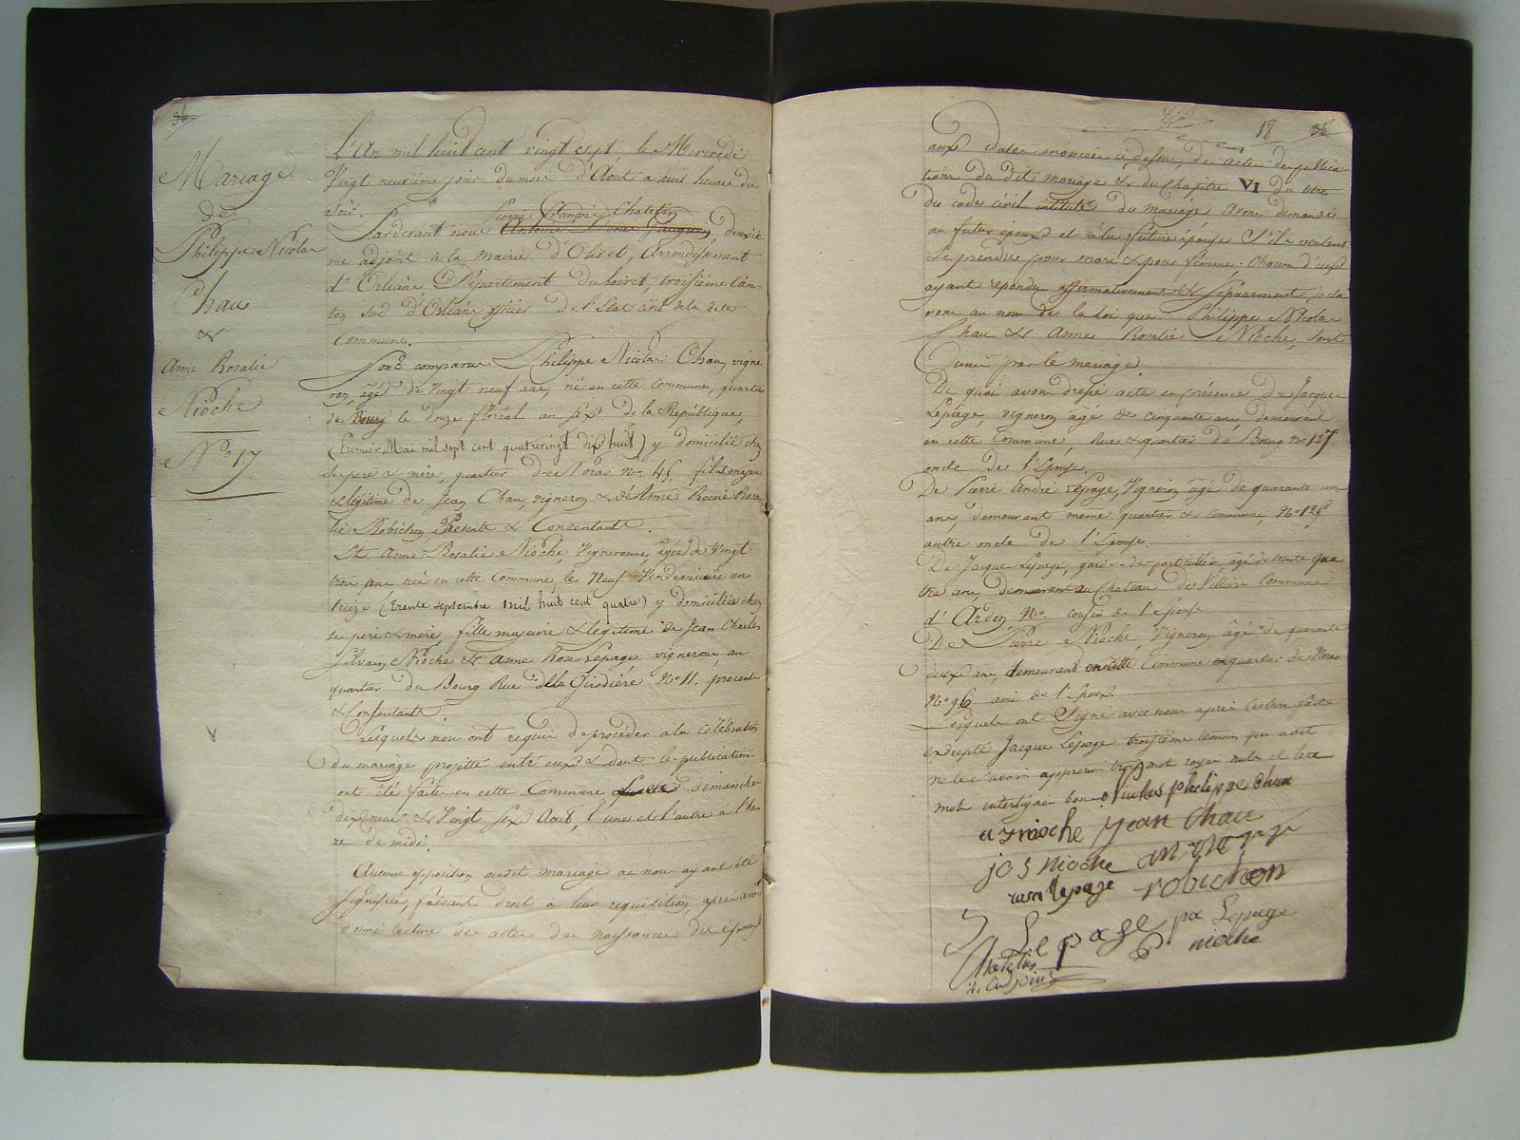 Mariage
de
Philippe Nicolas
Chau
&
Anne Rosalie
Nioche
N° 17
L'An mil huit cent vingt sept, le Mercredi
Vingt neuvième jour du mois d'Aout a huit heures du
soir.
Pardevant nous Pierre François Chatelin
adjoint à la mairie d'Olivet, Arrondissement
d'Orléans, Département du Loiret, troisième Can-
ton Sud d'Orléans officier de l'Etat civil de la dite
Commune.
Sont comparus Philippe Nicolas Chau, vigne
ron, âgé de Vingt neuf ans, né en cette Commune, quartier
de Bourg le douze floréal an six de la République,
(Premier Mai mil sept cent quatrevingt dix huit) y domicilié chez
ses pere & mère, quartier des Noras N° 45, fils majeur
& légitime de Jean Chau, vigneron & d'Anne
Robichon, Présents & Consentants.
Et Anne Rosalie Nioche, Vigneronne, âgée de Vingt
trois ans, née en cette Commune, le Neuf Vendemiaire an
treize (trente septembre mil huit cent quatre) y domiciliée chez
ses pere & mère, fille majeure & légitime de Jean Charles
Silvain Nioche & Anne Rose Lepage, vignerons, au
quartier du Bourg Rue de la Girodière N° 11. présents
& Consentants.
Lesquels nous ont requis de procéder à la Célébration
du mariage projetté entre eux & dont les publications
ont été faites en cette Commune les dimanches
dix neuf & Vingt six Aout, l'une et l'autre a l'heu
re de midi.
Aucune opposition audit mariage ne nous ayant été
signifiée, faisant droit a leur requisition, après avoir
donné lecture des actes de naissances des époux
18
aux dates énoncées ci dessus, des actes de publica-
tions du dit mariage & du Chapitre VI du titre
du code civil intitulé du mariage, avons demandé
au futur époux et à la future épouse s'ils veulent
se prendre pour mari & pour femme. chacun d'eux
ayant répondu affirmativement & séparément, décla
rons au nom de la loi que Philippe Nicolas
Chau & Anne Rosalie Nioche, sont
unis par le mariage.
De quoi avons dressé acte en présence de Jacques
Lepage, vigneron âgé de cinquante ans, demeurant
en cette Commune, Rue & quartier du Bourg N° 157
oncle de l'Epouse.
De Pierre André Lepage, Vigneron âgé de quarante un
ans, demeurant même quartier & commune, N°
autre oncle de l'Epouse.
De Jacques Lepage, garde de particulier âgé de trente qua
tre ans, demeurant au Chateau de Villiers Commune
d'Ardon, N° cousin de l'epouse
De Pierre Nioche, Vigneron âgé de quarante
deux ans, demeurant en cette Commune quartier de Noras
N° 96 ami de l'Epoux.
Lesquels ont Signé avec nous après lecture faite
excepté Jacques Lepage troisième témoin qui a dit
ne le savoir
mots interlignés bons Nicolas philippe chau
a r nioche jean Chau
j c s nioche
rose lepage robichon
Lepage pa Lepage
nioche
Chatelin
adjoint